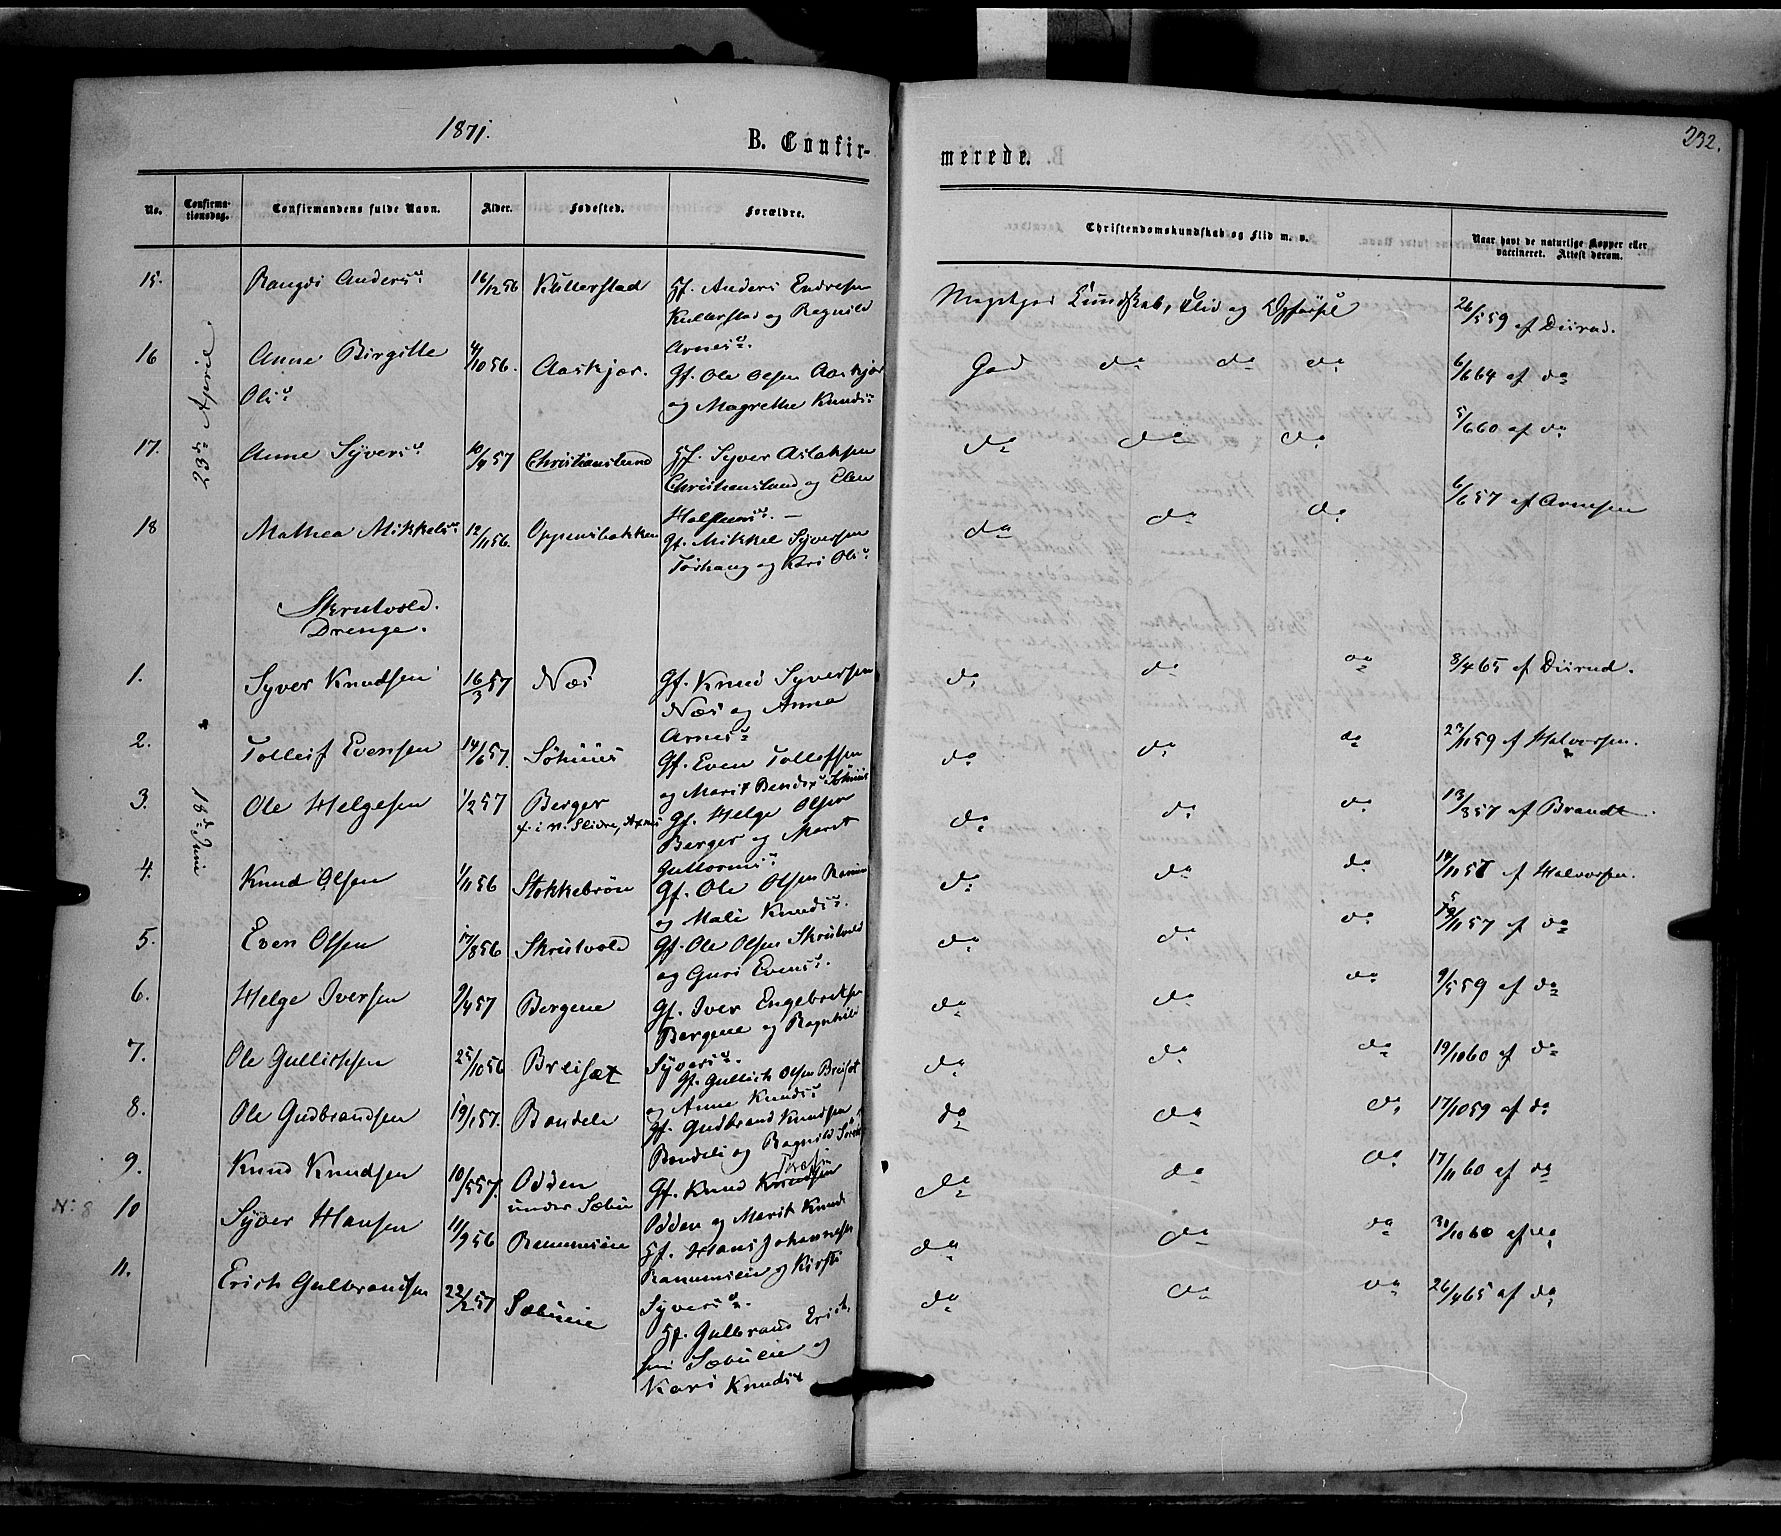 1871.
B. Confir-
merede.
232.
No.
Confirma-
tionsdag.
Confirmandens fulde Navn.
Alder.
Fødested.
Forældre.
Christendomskundskab og Flid m. v.
Naar havt de naturlige Kopper eller
vaccineret. Attest derom.
15. Rangdi Andersd 16/12 56 Kullerstad Gf. Anders Endresen
Kullerstad og Ragnild
Arnesd.
Kundskab, Flid og
26/5 59 af Diirud.
16 Anne Birgitte
Olsd 4/10 56. Aaskjær. Gf. Ole Olsen Aaskjær
og Magrethe Knudsd
God do do do 6/6 64 af do
17. Anne Syversd 10/4 57 Christianslund Gf. Syver Aslaksen
Christianslund og Elen
do do do 5/6 60 af do
18 Mathea Mikkelsd 12/11 56. Oppensbakken Gf. Mikkel Syversen
og Kari Olsd
do do do 6/6 57 af Arnesen
Skrutvold.
Drenge.
18de Juni
1. Syver Knudsen 16/3 57 Næs Gf. Knud Syversen
Næs og Anna
Arnesd
do do do 8/4 65 af Diirud.
2. Tolleif Evensen 14/6 57. Gf. Even Tollefsen
og Marit
do do do 23/11 59 af Halvorsen.
3. Ole Helgesen 1/2 57 Berger
f. i n. Slidre, Gf. Helge Olsen
Berger og Marit
Guttormsd
do do do 13/8 57 af Brandt.
4. Knud Olsen 1/11 56 Stokkebrøn Gf. Ole Olsen
og Mali Knudsd.
do do do 14/11 57 af Halvorsen.
5. Even Olsen 17/8 56 Skrutvold Gf. Ole Olsen Skrutvold
og Guri Evensd.
do do do /11 57 af do
6. Helge Iversen 9/4 57 Bergene Gf. Iver Engebretsen
Bergene og Ragnhild
Syversd.
do do do 9/5 59 af do
7. Ole Gulliksen 25/10 56 Breisæt Gf. Gullich Olsen Breisæt
og Anne Knudsd
do do do 19/10 60 af do
8. Ole Gudbrandsen 19/1 57. Bændeli Gf. Gudbrand Knudsen
Bændeli og Ragnild
do do do 17/10 59 af do
9. Knud Knudsen 10/5 57. Odden
under Sæbu Gf. Knud
Odden og Marit Knuds
do do do 17/11 60 af do
N: 8
10 Syver Hansen 11/9 56 Gf. Hans Johannesen
og Kirsti
Syversd.
do do do 30/10 60 af do
11. Erich Gulbrandsen 22/2 57 Sæbueie Gf. Gulbrand Erich-
sen Sæbueie og
Kari Knudsd
do do do 26/4 65 af do